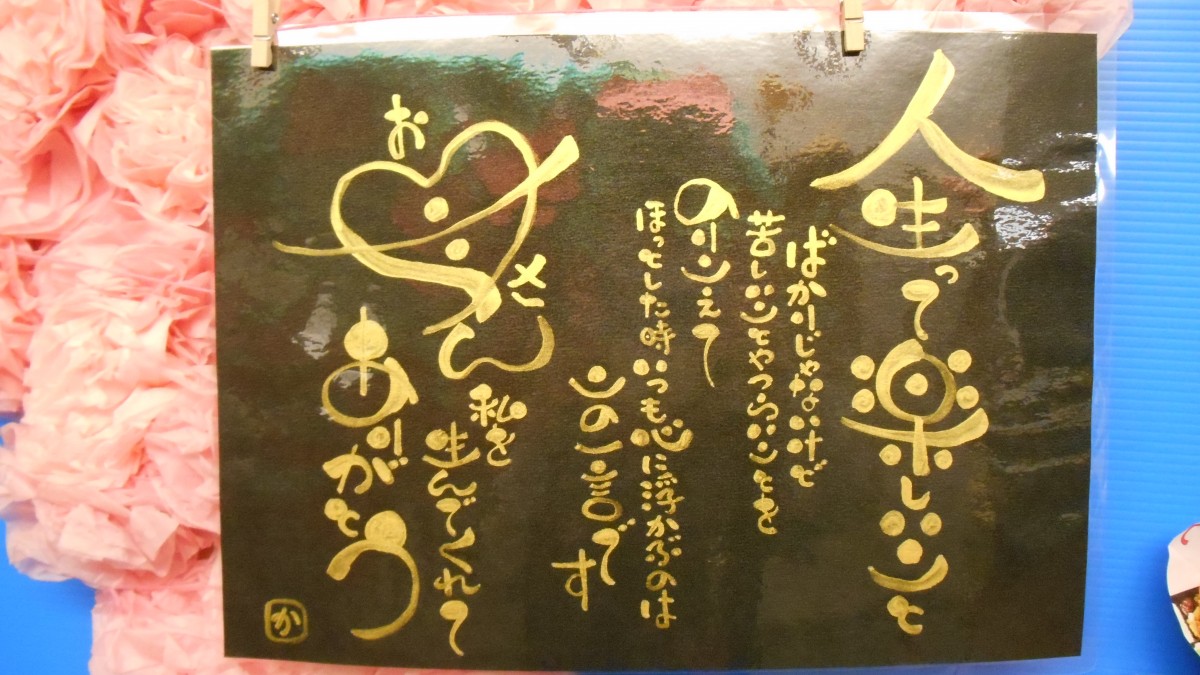 人生って楽しいこと
ばかりじゃないけど
苦しいことやつらいことを
のりこえて
ほっとした時いつも心に浮かぶのは
この一言です
お母さん
私を
生んでくれて
ありがとう
か